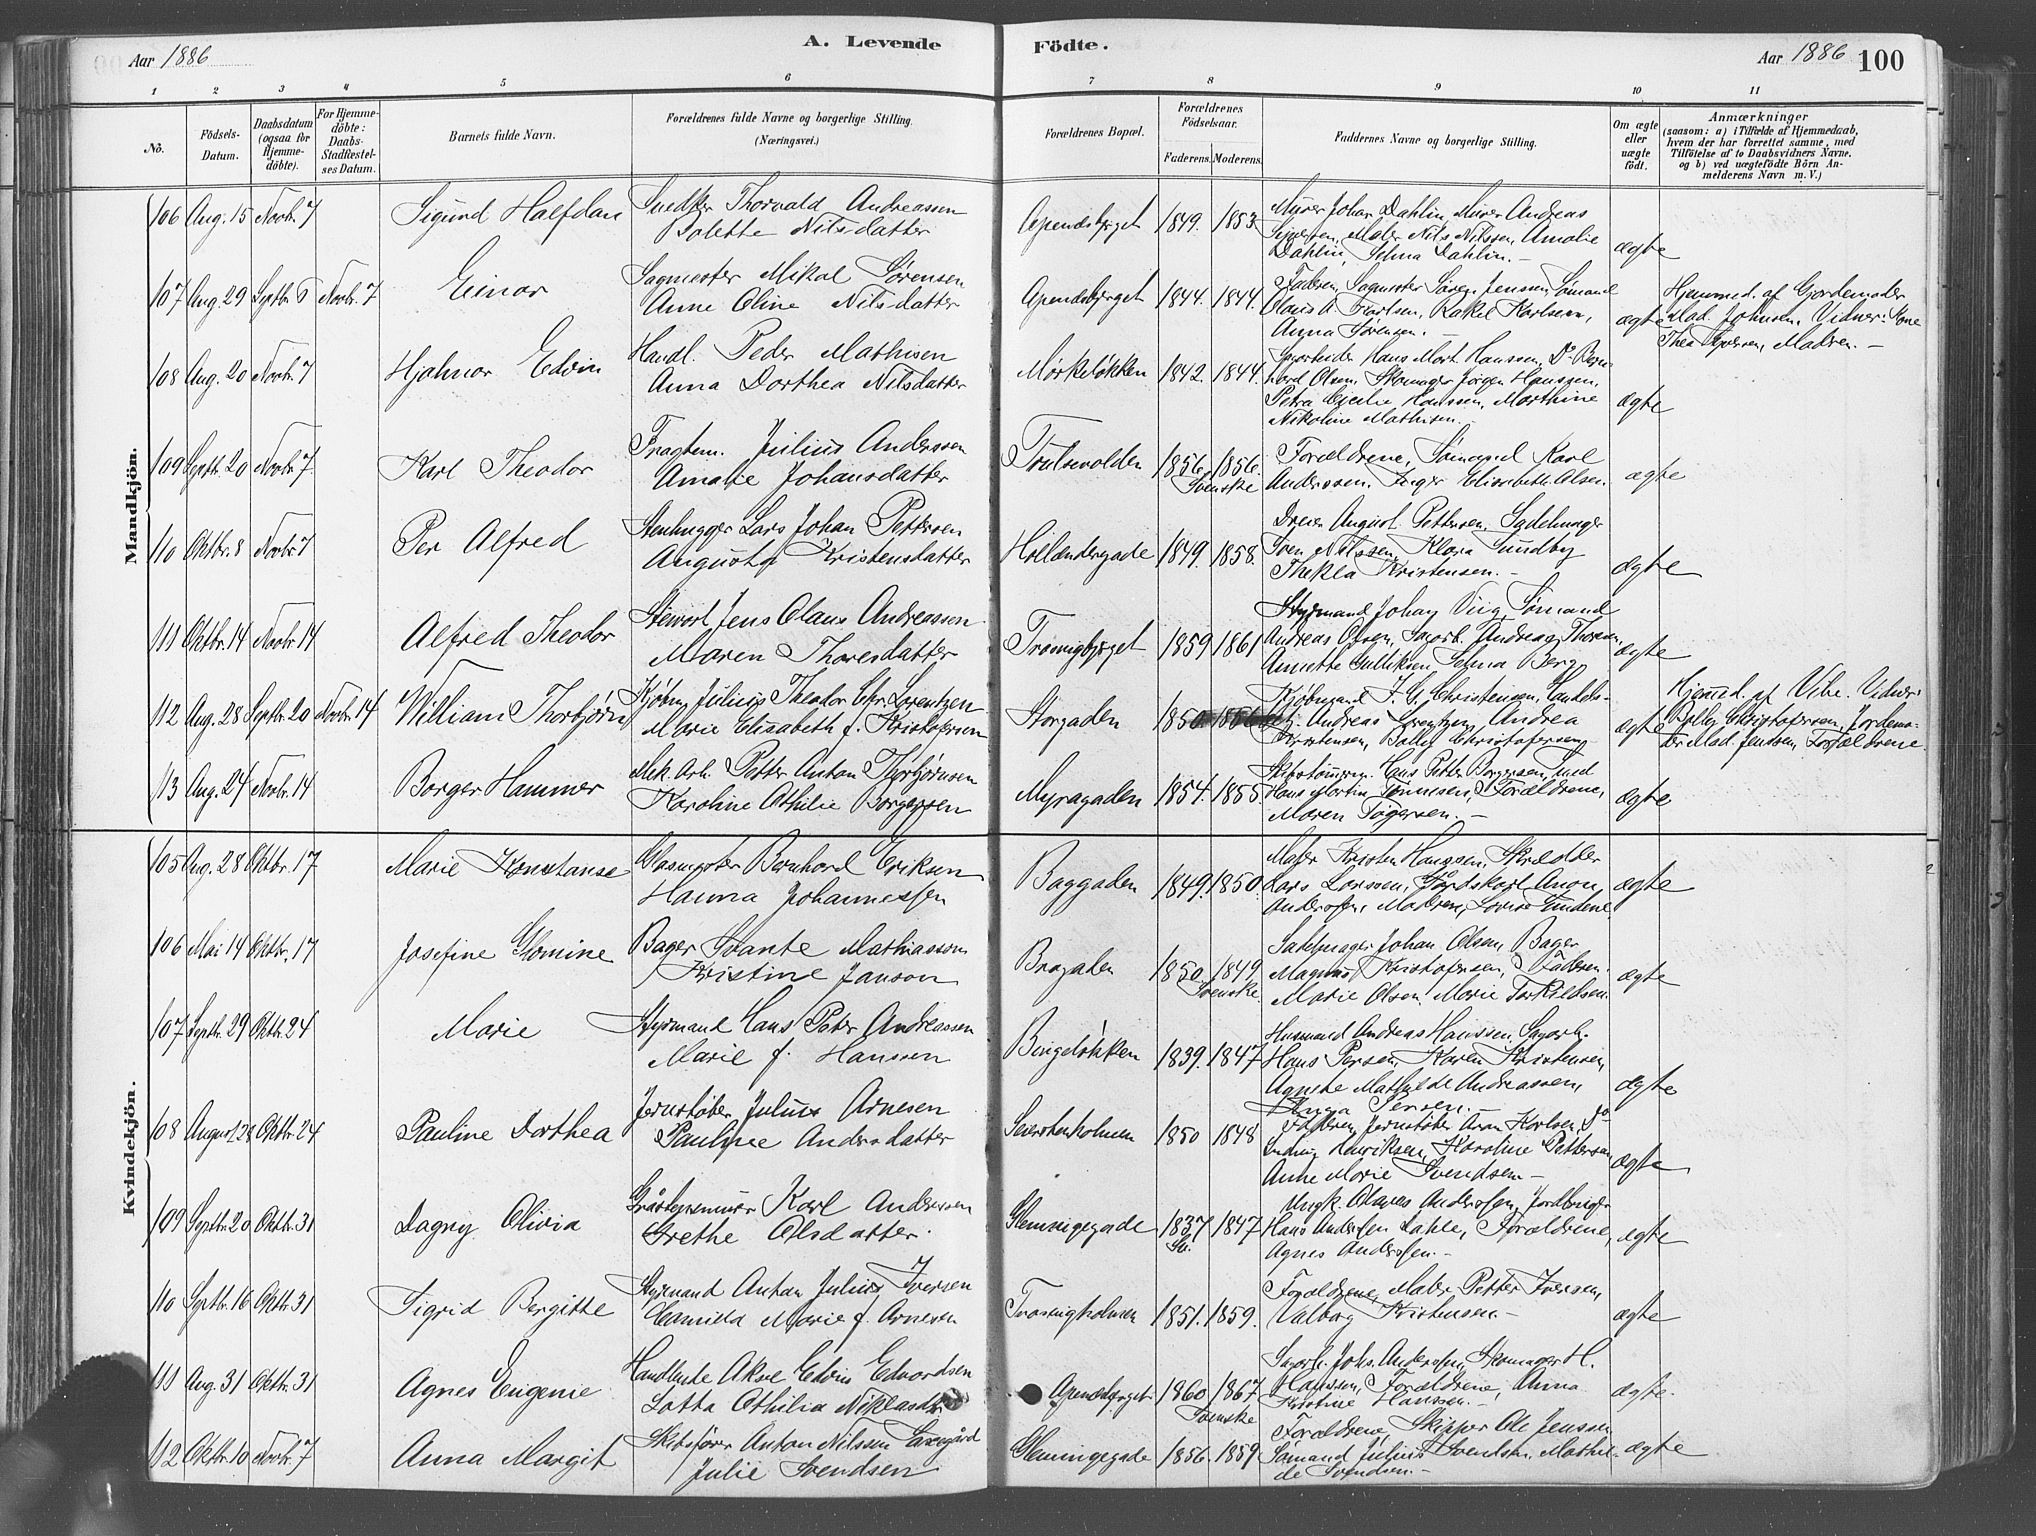 Aar 1886
A. Levende
Födte.
Aar 1886
100
1 2 3 4 5 6 7 8 9 10 11
No.
Födsels-
Datum.
Daabsdatum
(ogsaa for
Hjemme-
döbte).
For Hjemme-
döbte:
Daabs-
Stadfæstel-
ses Datum.
Barnets fulde Navn.
Forældrenes fulde Navne og borgerlige Stilling.
(Næringsvei.)
Forældrenes Bopæl.
Forældrenes
Födselsaar.
Faderens. Moderens.
Faddernes Navne og borgerlige Stilling.
Om ægte
eller
uægte
födt.
Anmærkninger
(saasom: a) i Tilfælde af Hjemmedaab,
hvem der har forrettet samme, med
Tilföielse af to Daabsvidners Navne,
og b) ved uægtefödte Börn An-
melderens Navn m. V.)
Mandkjön.
106 Aug. 15 Novbr. 7 Sigurd Halfdan
Snedker Thorvald Andreassen
Solette Nilsdatter
Apenesbjerget 1849. 1853.
Murer Johan Dahlin, Murer Andreas
Syversen, Maler Nils Nilssen, Amalie
Dahlin, Selma Dahlin. -
ægte
107 Aug. 29 Septbr 6 Novbr. 7 Einar
Sagmester Mikal Sørensen
Anne Oline Nilsdatter
Apenesbjerget 1844. 1844.
Faderen, Sagmester Søren Jenssen, Sømand
Olaus A. Karlsen, Rakel Karlsen,
Anna Sørensen. -
ægte
Hjemmed. af Gjordemoder
Mad. Johnsen. Vidner: Kone
Thea Syversen, Madren. -
108 Aug. 20 Novbr. 7 Hjalmar Edvin
Handl. Peder Mathisen
Anna Dorthea Nilsdatter
Mørkeløkken 1842. 1844.
Hans Mart. Hanssen, Do Bern-
hard Olsen, Skomager Jørgen Hanssen,
Petra Cecilie Hanssen, Marthine
Nikoline Mathisen. -
ægte
109 Septbr. 20 Novbr. 7. Karl Theodor
Fragtem. Julius Anderssen
Amalie Johansdatter
Trutsevolden 1856. 1856.
Svenske
Forældrene, Sømand Karl
Anderssen, Inger Elisabeth Olsen.
ægte
110 Oktbr. 8 Novbr. 7 Per Alfred
Stenhugger Lars Johan Pettersen
Augusta Kristensdatter
Hollændergade 1849. 1858.
Dreier August Pettersen, Sadelmager
Sven Nilssen, Klara Sundby
Thekla Kristensen. -
ægte
111 Oktbr. 14 Novbr. 14 Alfred Theodor
Stewart Jens Olaus Andreassen
Maren Thoresdatter
Trosvigbjerget 1859 1861
Styrmand Johan Viig, Sømand
Andreas Olsen, Sagarb. Andreas Thoresen,
Annette Gulliksen, Selma Berg
ægte
112 Aug. 28 Septbr. 20 Novbr. 14 William Thorbjørn
Kjøbm. Julius Theodor Chr. Lorentzen
Marie Elisabeth f. Kristofersen
Storgaden 1850.
Kjøbmand J. G. Christensen, Handels-
Andreas Lorentzen, Andrea
Kristensen, Bolly Christofersen
ægte
Hjemmed. af Vibe. Vidner:
Bolly Christofersen, Jordemo-
der Mad. Jenssen, Forældrene.
113 Aug. 24 Novbr. 14 Borger Hammer
Mek. Arb. Petter Anton Thorbjørnsen
Karoline Othilie Borgersen
Myragaden 1854. 1855.
Skibstømmerm. Hans Petter Borgersen,
Hans Martin Tønnesen, Forældrene,
Maren Tøgersen. -
ægte
Kvindekjön.
105 Aug. 28 Oktbr. 17 Marie Konstanse
Glasmester Bernhard Eriksen
Hanna Johannessen
Baggaden 1849. 1850.
Maler Kristen Hanssen, Skrædder
Lars Larssen, Gårdskarl Anon
Anderssen, Madren, Lovise
ægte
106 Mai 14 Oktbr. 17 Josefine Glomine
Bager Svante Mathiasson
Kristine Janson
Bragaden 1850. 1849.
Svenske.
Sadelmager Johan Olsen, Bager
Magnus Kristofersen, Faderen.
Marie Olsen, Marie Torkildsen.
ægte
107 Septbr. 29 Oktbr. 24 Marie
Styrmand Hans Peter Andreassen
Marie f. Hanssen
Bingeløkken 1839. 1847
Husmand Andreas Hanssen, Sagarb.
Hans Persen, Karen Kristensen,
Agnete Mathilde Andreassen,
Inga Jensen. -
ægte
108 August 28 Oktbr. 24 Pauline Dorthea
Jernstøber Julius Arnesen
Pauline Andersdatter
Seierstenholmen 1850 1848
Faderen, Jernstøber Aron Karlsen, Do
Ludvig Henriksen, Karoline Pettersen
Anne Marie Svendsen -
ægte
109 Septbr. 20 Oktbr. 31 Dagny Olivia
Gråstensmurer Karl Andersen
Grethe Olsdatter.
Glemmigegade 1837 1847
Sv.
Ungk. Olaves Anderssen, Jordbruger
Hans Anderssen Dahle, Forældrene,
Agnes Anderssen. -
ægte
110 Septbr. 16 Oktbr. 31 Sigrid Bergitte
Styrmand Anton Julius Iversen
Hamida Marie f. Arnesen
Trosvigholmen 1851. 1859.
Forældrene, Maler Petter Iversen,
Valborg Kristensen. -
ægte
111 Aug. 31 Oktbr. 31 Agnes Eugenie
Handlende Aksel Edvin Edvardsen
Lotta Othilia Niklasdtr
Apenesbjerget 1860 1867
Svenske
Sagarb. Johs. Anderssen, Skomager H.
Hanssen, Forældrene, Anna
Kristine Hanssen. -
ægte.
112 Oktbr. 10 Novbr. 7 Anna Margit
Skibsfører Anton Nilssen
Julie Svendsen
Glemmigegade 1856. 1859
Forældrene, Skipper Ole Jenssen
Sømand Julius Svendsen, Mathil-
de Svendsen. -
ægte